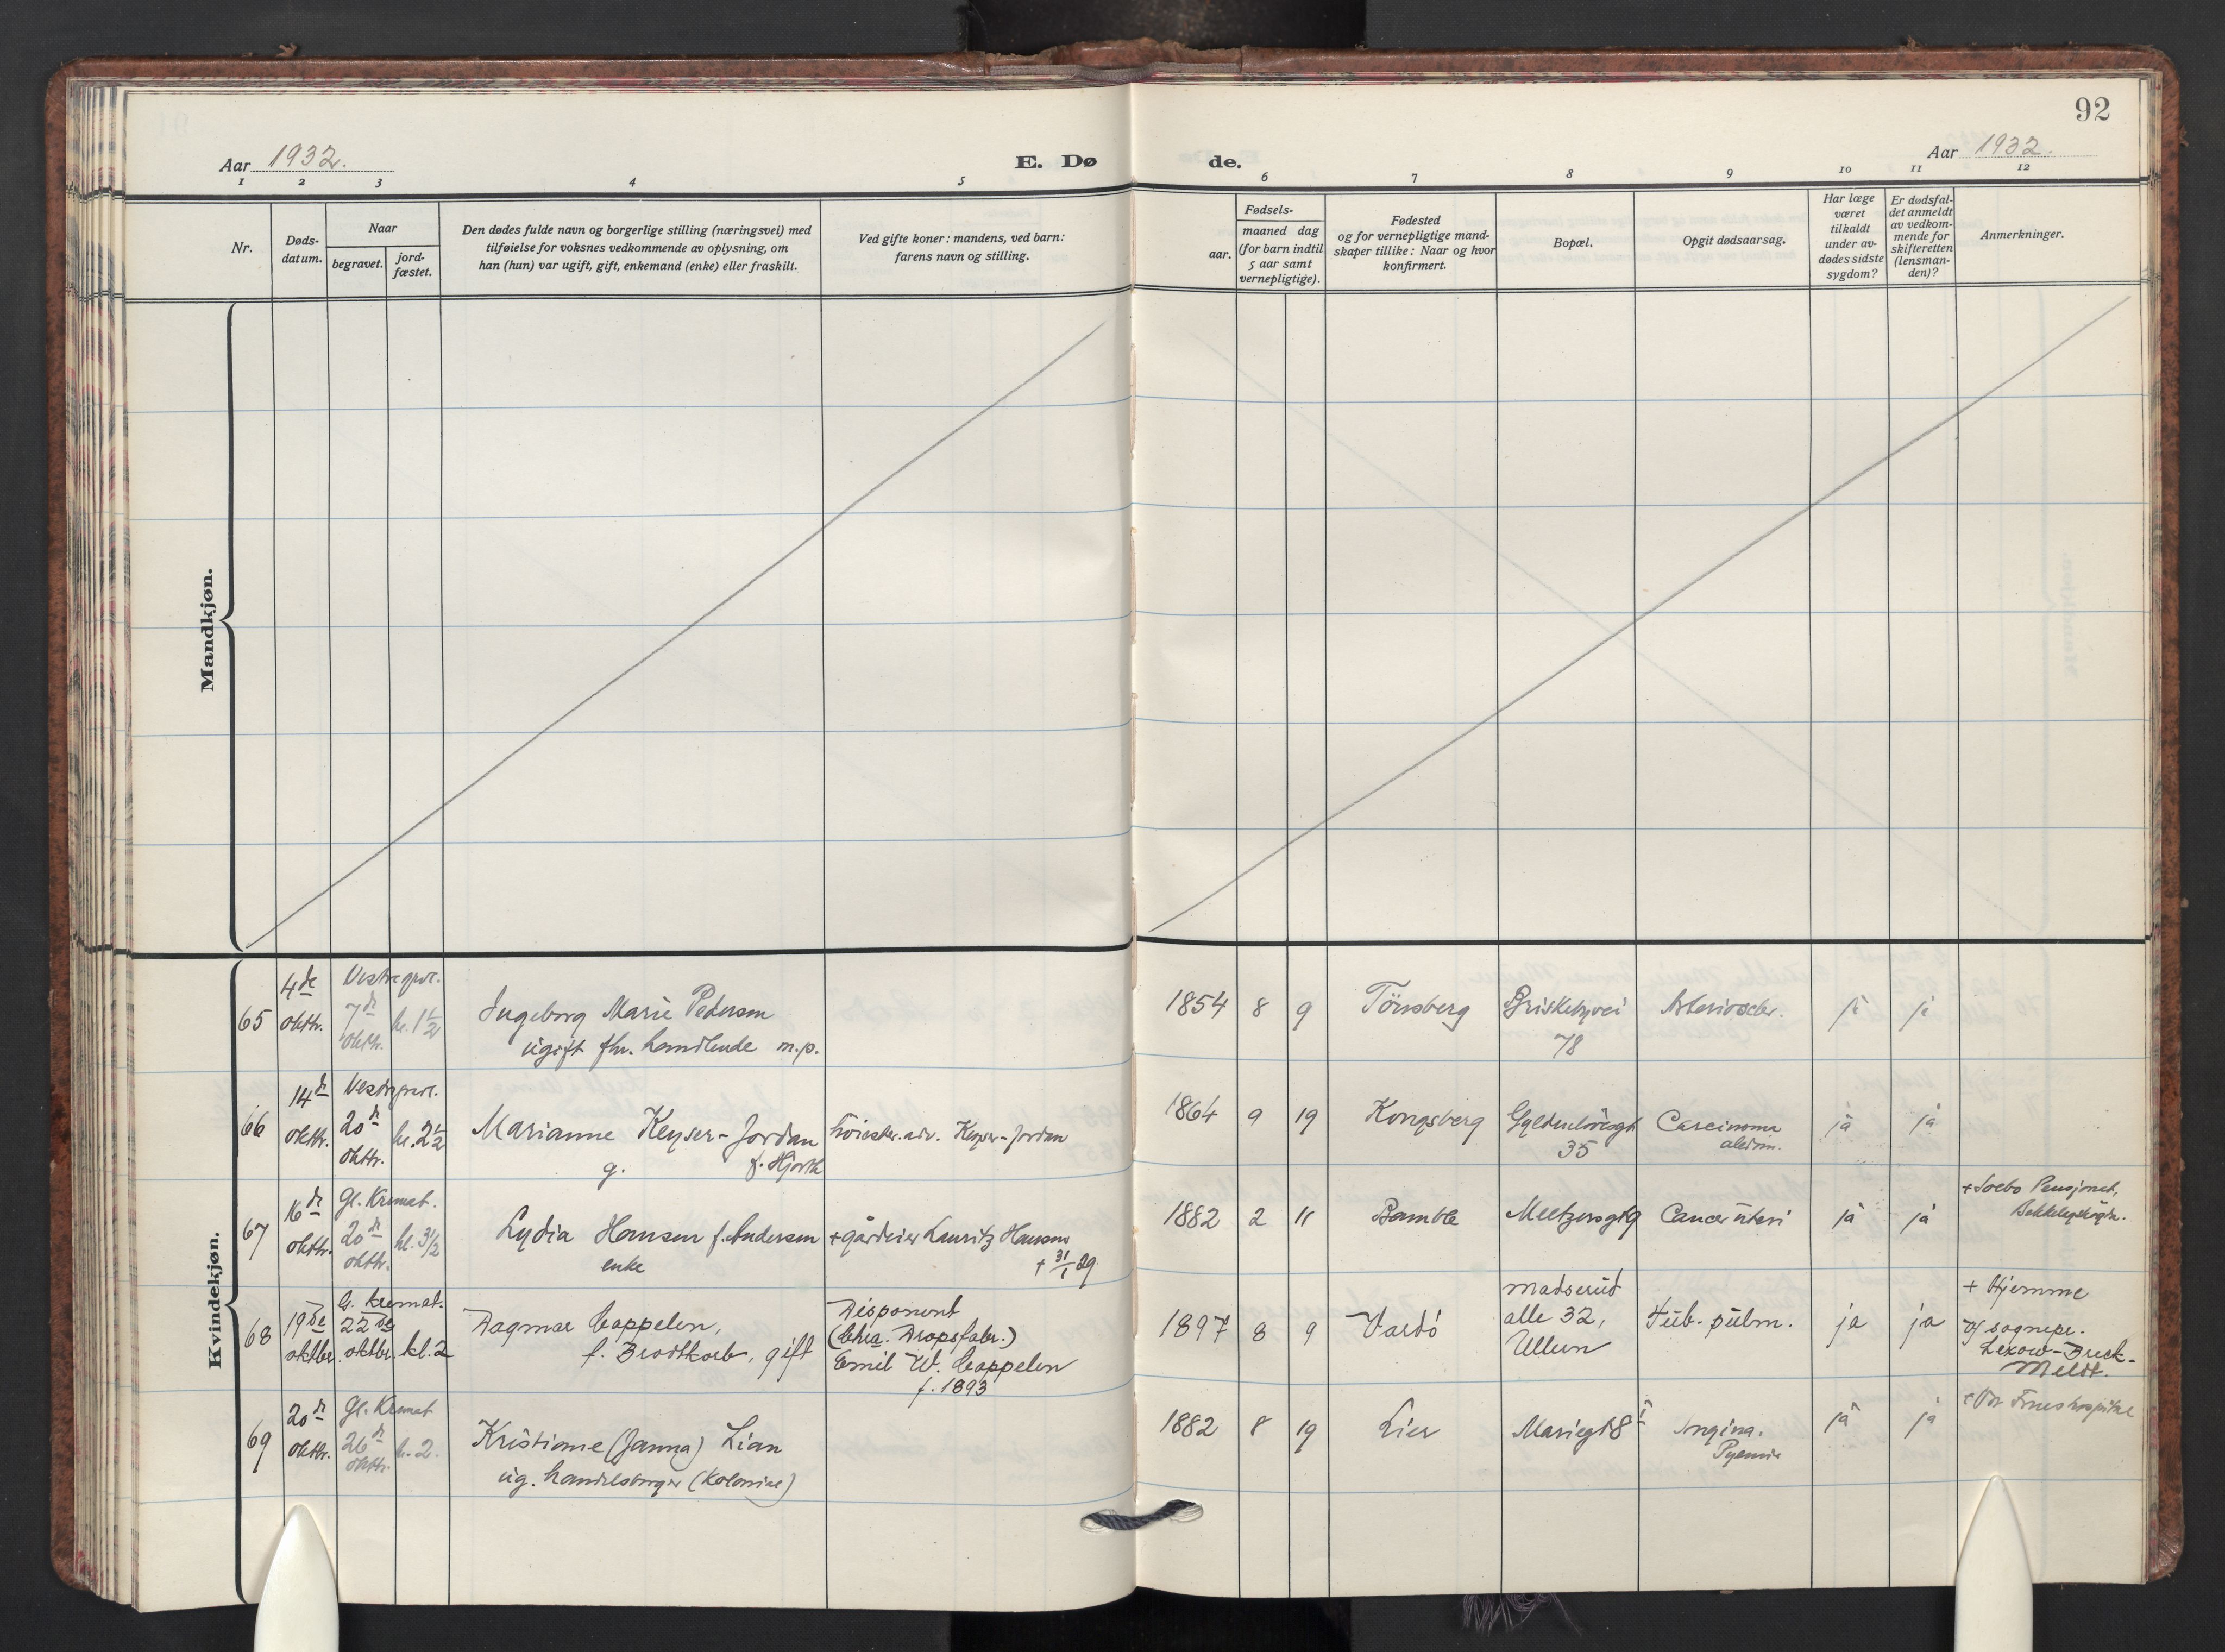 92
Aar 1932.
E. Dø
de.
Aar 1932.
1 2 3 4 5 6 7 8 9 10 11 12
Nr.
Døds-
datum.
Naar
begravet.
jord-
fæstet.
Den dødes fulde navn og borgerlige stilling (næringsvei) med
tilføielse for voksnes vedkommende av oplysning, om
han (hun) var ugift, gift, enkemand (enke) eller fraskilt.
Ved gifte koner: mandens, ved barn:
farens navn og stilling.
Fødsels-
aar.
maaned dag
(for barn indtil
5 aar samt
vernepligtige).
Fødested
og for vernepligtige mand-
skaper tillike: Naar og hvor
konfirmert.
Bopæl.
Opgit dødsaarsag.
Har læge
været
tilkaldt
under av-
dødes sidste
sygdom?
Er dødsfal-
det anmeldt
av vedkom-
mende for
skifteretten
(lensman-
den)?
Anmerkninger.
Mandkjøn.
Kvindekjøn.
65
4de
oktbr.
Vestre grvl.
7de
oktbr.
kl. 1 1/2
Ingeborg Marie Pedersen
ugift fhv. handlende m.p.
1854 8 9
Tönsberg
Briskebyvei
78
Arterioscler.
ja
ja
66
14de
oktbr.
Vestre grvl.
20de
oktbr.
kl. 2 1/2
Marianne Keyser-Jordan
g. f. Hjorth
höiester.adv. Keyser-Jordan
1864 9 19
Kongsberg
Gyldenlövesgt
35
Carcinoma
abdom.
ja
ja
67
16de
oktbr.
Gl. Kremat.
20de
oktbr.
kl. 3 1/2
Lydia Hansen f. Andersen
enke
+ gårdeier Lauritz Hansen
+ 31/1 29
1882 2 11
Bamble
Meltzersgt 9
Cancer uteri
ja
ja
+ Soebo Pensjonat,
68
19de
oktbr.
G. Kremat.
22de
oktbr. kl. 2
Dagmar Cappelen,
f. Brodtkorb, gift
Disponent
(Chra. Dropsfabr.)
Emil W. Cappelen
f. 1893
1897 8 9
Vardö
Madserud
alle 32,
Ullern
Tub. pulm.
ja
ja
+ Hjemme
v/ sognepr.
Lexow-Breck-
Meldt.
69
20de
oktbr.
Gl. Kremat
26de
oktbr.
kl. 2.
Kristiane (Janna) Lian
ug. handelsborger (Kolonial)
1882 8 19
Lier
Mariegt 8
Angina.
Pyemie
ja
ja
+ Vor Frues hospital